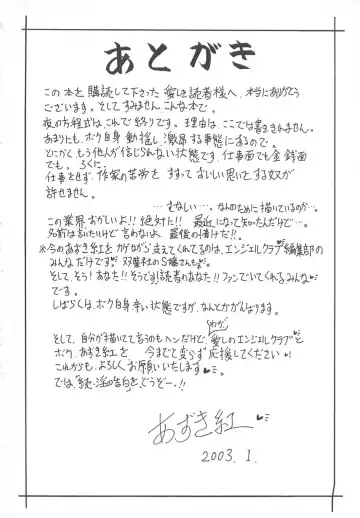 あとがき
この本を購読して下さった愛しき読者様へ、本当にありがとう
ございます。そしてすみません こんな本で。
夜の方程式はこれで終りです。理由は ここでは書ききれません。
あまりにも、ボク自身 動揺し 激昂する事態にあるので。
とにかく もう他人が信じられない状態です。仕事面でも 金銭面
でも。 ろくに
仕事もせず、作家の苦労を すすって おいしい思いをする奴が
許せません。
…むなしい…。なんのために描いているのか…。
この業界 おかしいよ!! 絶対に!! 最近になって知ったんだけど…。
名前は出したいけど 言わないよ 最後の情けだ!!
※今のあずき紅を かげながら 支えてくれてるのは、エンジェルクラブ編集部の
みんなだけです 双葉社のS様さんも
そして、そう! あなた!! そうです! 読者のあなた!! ファンでいてくれる みんな
です。
しばらくは、ボク自身 辛い状態ですが、なんとかがんばります。
そして、自分が描いてて言うのもヘンだけど、愛しのエンジェルクラブと
ボク、あずき紅を 今までと変らず 応援してください
これからも、よろしくお願いいたします。
では、「続・淫の告白」をどうぞー!!
あずき紅
2003. 1.